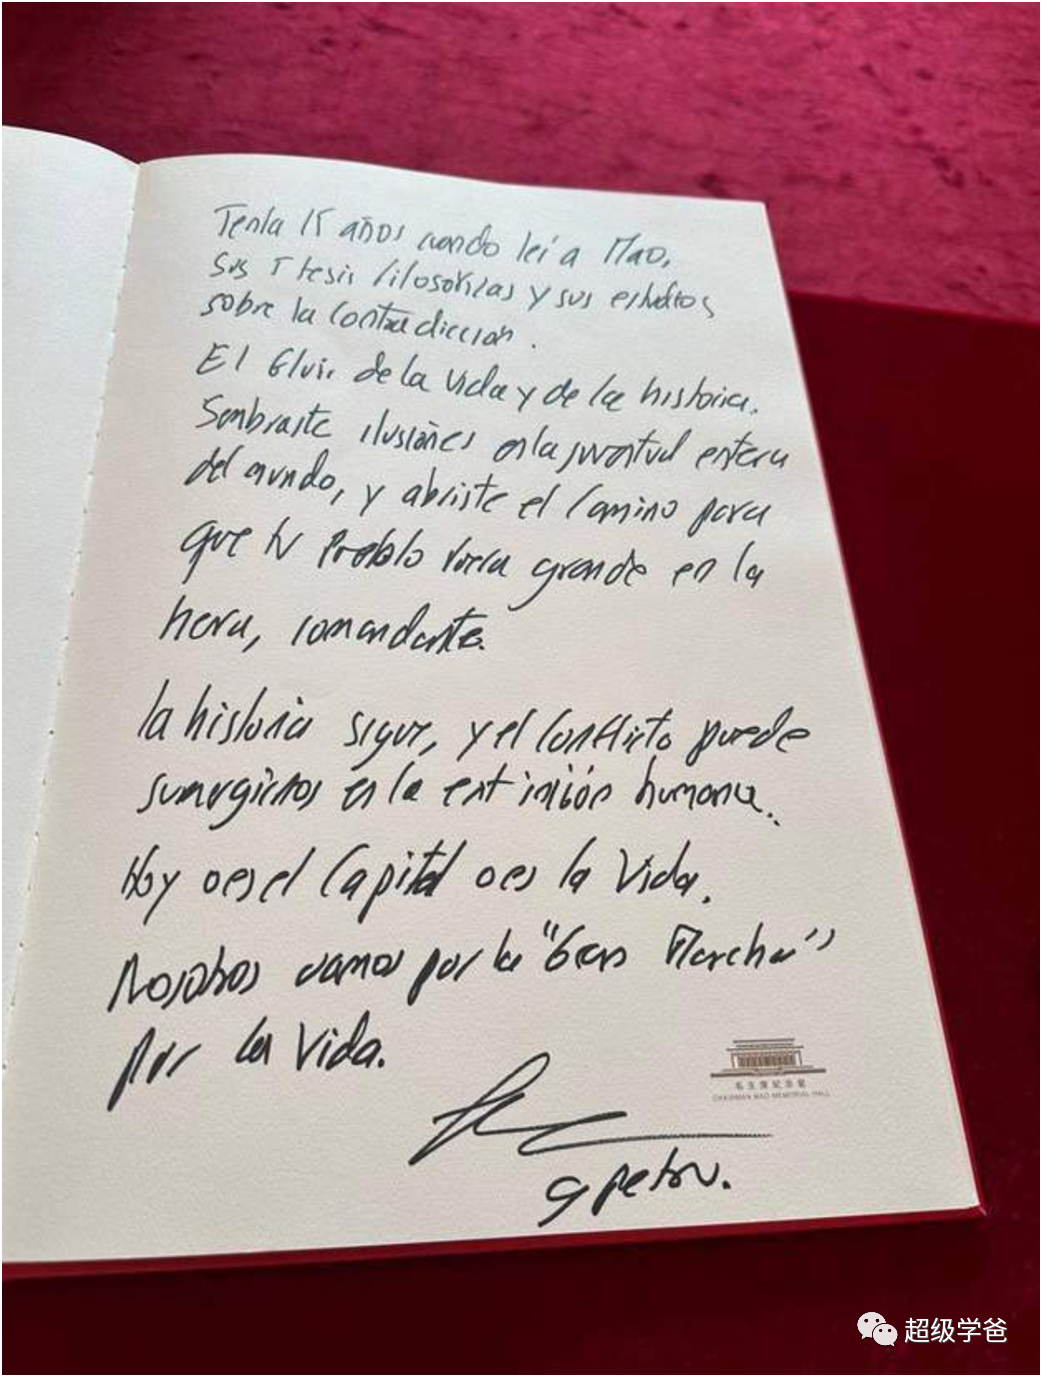 Tenía 15 años cuando leí a Mao,
sus Thesis filosóficas y sus estudios
sobre la Contradicción.
El fluir de la vida y de la historia.
Sembraste ilusiones en la juventud entera
del mundo, y abriste el camino para
que tu Pueblo fuera grande en la
tierra, comandante.
la historia sigue, y el Conflicto puede
sumergirnos en la extinción humana.
Hoy o es el Capital o es la Vida.
Nosotros vamos por la "Gran Marcha"
por la Vida.
毛主席纪念堂
CHAIRMAN MAO MEMORIAL HALL
G petro.
超级学爸